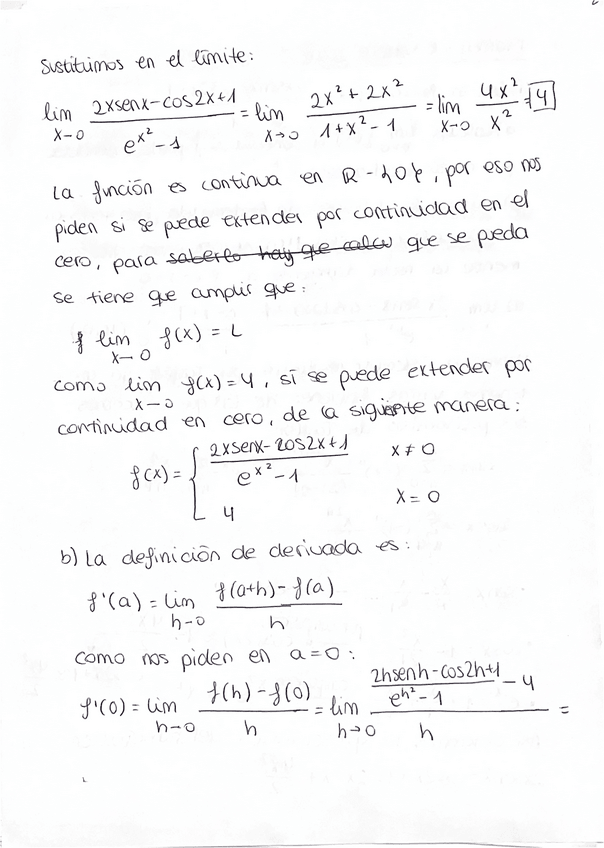 Sustituimos en el límite:
lim x→0 (2xsenx-cos2x+1)/(e^(x²)-1) = lim x→0 (2x²+2x²)/(1+x²-1) = lim x→0 4x²/x² = 4
La función es continua en R-{0}, por eso nos
piden si se puede extender por continuidad en el
cero, para saberlo hay que calcu que se pueda
se tiene que amplir que:
∃ lim x→0 f(x) = L
como lim x→0 f(x) = 4, sí se puede extender por
continuidad en cero, de la siguiente manera:
f(x) = { (2xsenx-cos2x+1)/(e^(x²)-1) x≠0
4 x=0
b) La definición de derivada es:
f'(a) = lim h→0 (f(a+h)-f(a))/h
como nos piden en a=0:
f'(0) = lim h→0 (f(h)-f(0))/h = lim h→0 ((2hsenh-cos2h+1)/(e^(h²)-1) - 4)/h =